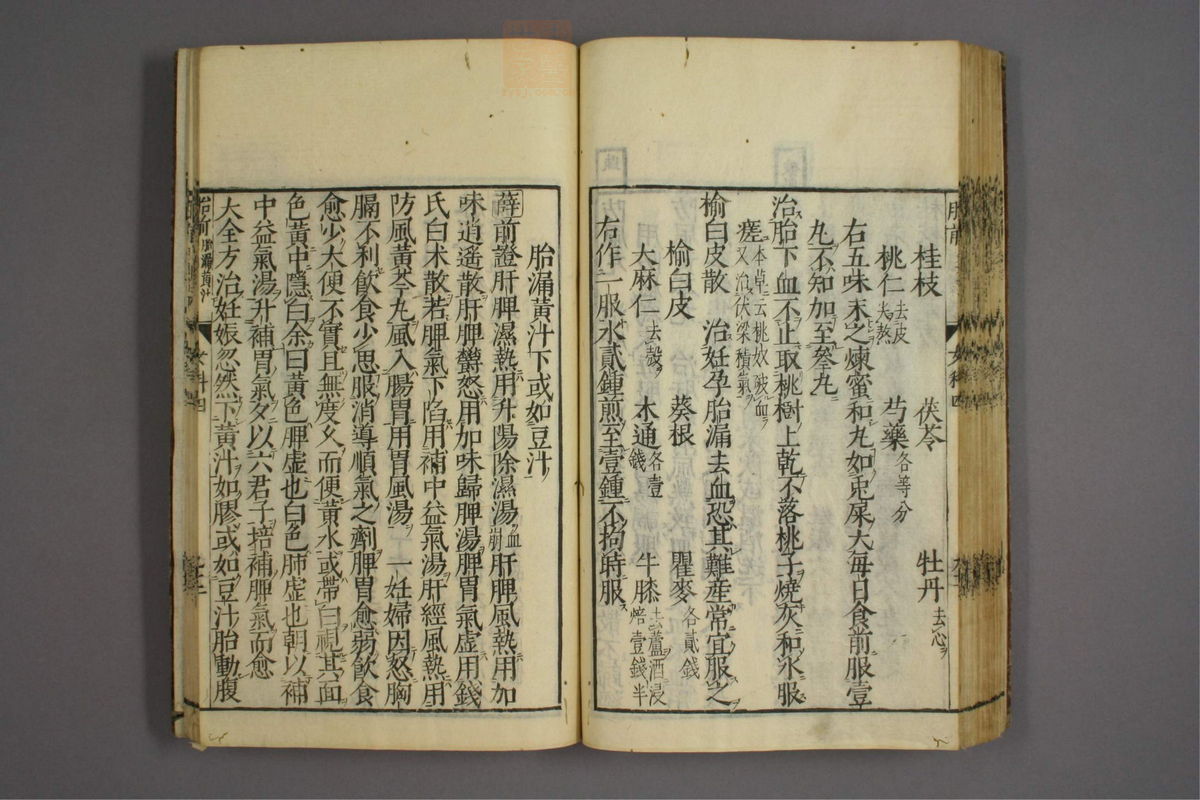 桂枝　茯苓　牡丹去心
桃仁去皮尖熬　芍藥各等分
右五味末之煉蜜和丸如兎屎大每日食前服壹
丸不知加至叄丸
治胎下血不止取桃樹上乾不落桃子燒灰和水服
瘥本草云桃奴破血又治伏梁積氣
榆白皮散　治妊孕胎漏去血恐其難産常宜服之
榆白皮　葵根　瞿麥各貳錢
大麻仁去殼　木通各壹錢　牛膝去蘆酒浸焙壹錢半
右作一服水貳鍾煎至壹鍾不拘時服
胎漏黃汁下或如豆汁
薛前證肝脾濕熱用升陽除濕湯血崩肝脾風熱用加
味逍遙散肝脾鬱怒用加味歸脾湯脾胃氣虛用錢
氏白朮散若脾氣下陷用補中益氣湯肝經風熱用
防風黃芩丸風入腸胃用胃風湯　一妊婦因怒胸
膈不利飲食少思服消導順氣之劑脾胃愈弱飲食
愈少大便不實且無度久而便黃水或帶白視其面
色黃中隱白余曰黃色脾虛也白色肺虛也朝以補
中益氣湯升補胃氣夕以六君子培補脾氣而愈
大全方治妊娠忽然下黃汁如膠或如豆汁胎動腹
女科四